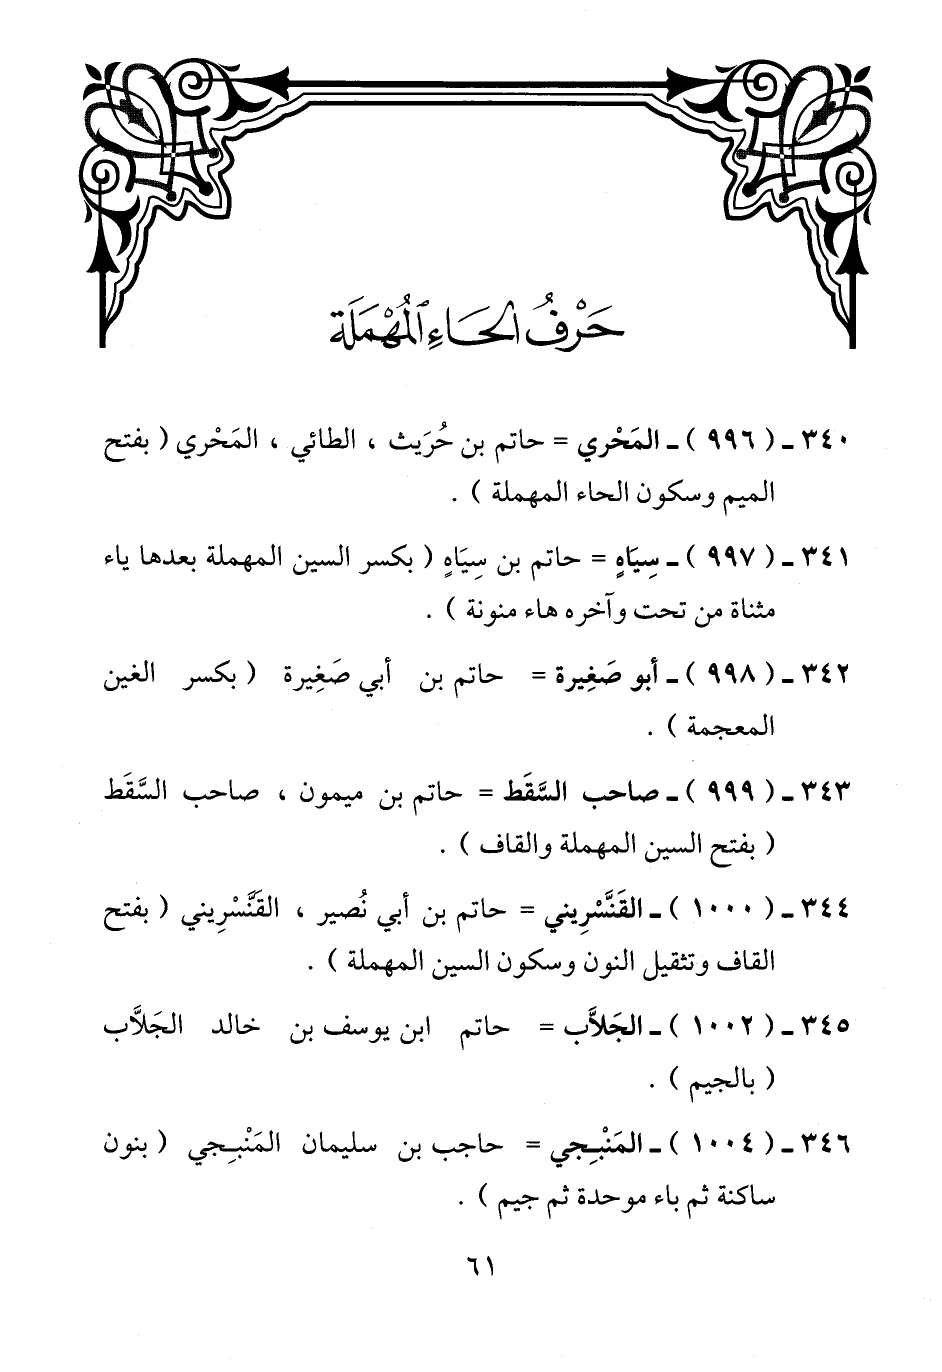 حَرْفُ الحَاءِ المُهْمَلَة
٣٤٠ ـ ( ٩٩٦ ) ـ المَحْري = حاتم بن حُرَيث ، الطائي ، المَحْري ( بفتح
الميم وسكون الحاء المهملة ) .
٣٤١ ـ ( ٩٩٧ ) ـ سِيَاهٍ = حاتم بن سِيَاهٍ ( بكسر السين المهملة بعدها ياء
مثناة من تحت وآخره هاء منونة ) .
٣٤٢ ـ ( ٩٩٨ ) ـ أبو صَغِيرة = حاتم بن أبي صَغِيرة ( بكسر الغين
المعجمة ) .
٣٤٣ ـ ( ٩٩٩ ) ـ صاحب السَّقَط = حاتم بن ميمون ، صاحب السَّقَط
( بفتح السين المهملة والقاف ) .
٣٤٤ ـ ( ١٠٠٠ ) ـ القَنَّسْرِيني = حاتم بن أبي نُصير ، القَنَّسْرِيني ( بفتح
القاف وتثقيل النون وسكون السين المهملة ) .
٣٤٥ ـ ( ١٠٠٢ ) ـ الجَلاَّب = حاتم ابن يوسف بن خالد الجَلاَّب
( بالجيم ) .
٣٤٦ ـ ( ١٠٠٤ ) ـ المَنْبِجي = حاجب بن سليمان المَنْبِجي ( بنون
ساكنة ثم باء موحدة ثم جيم ) .
٦١